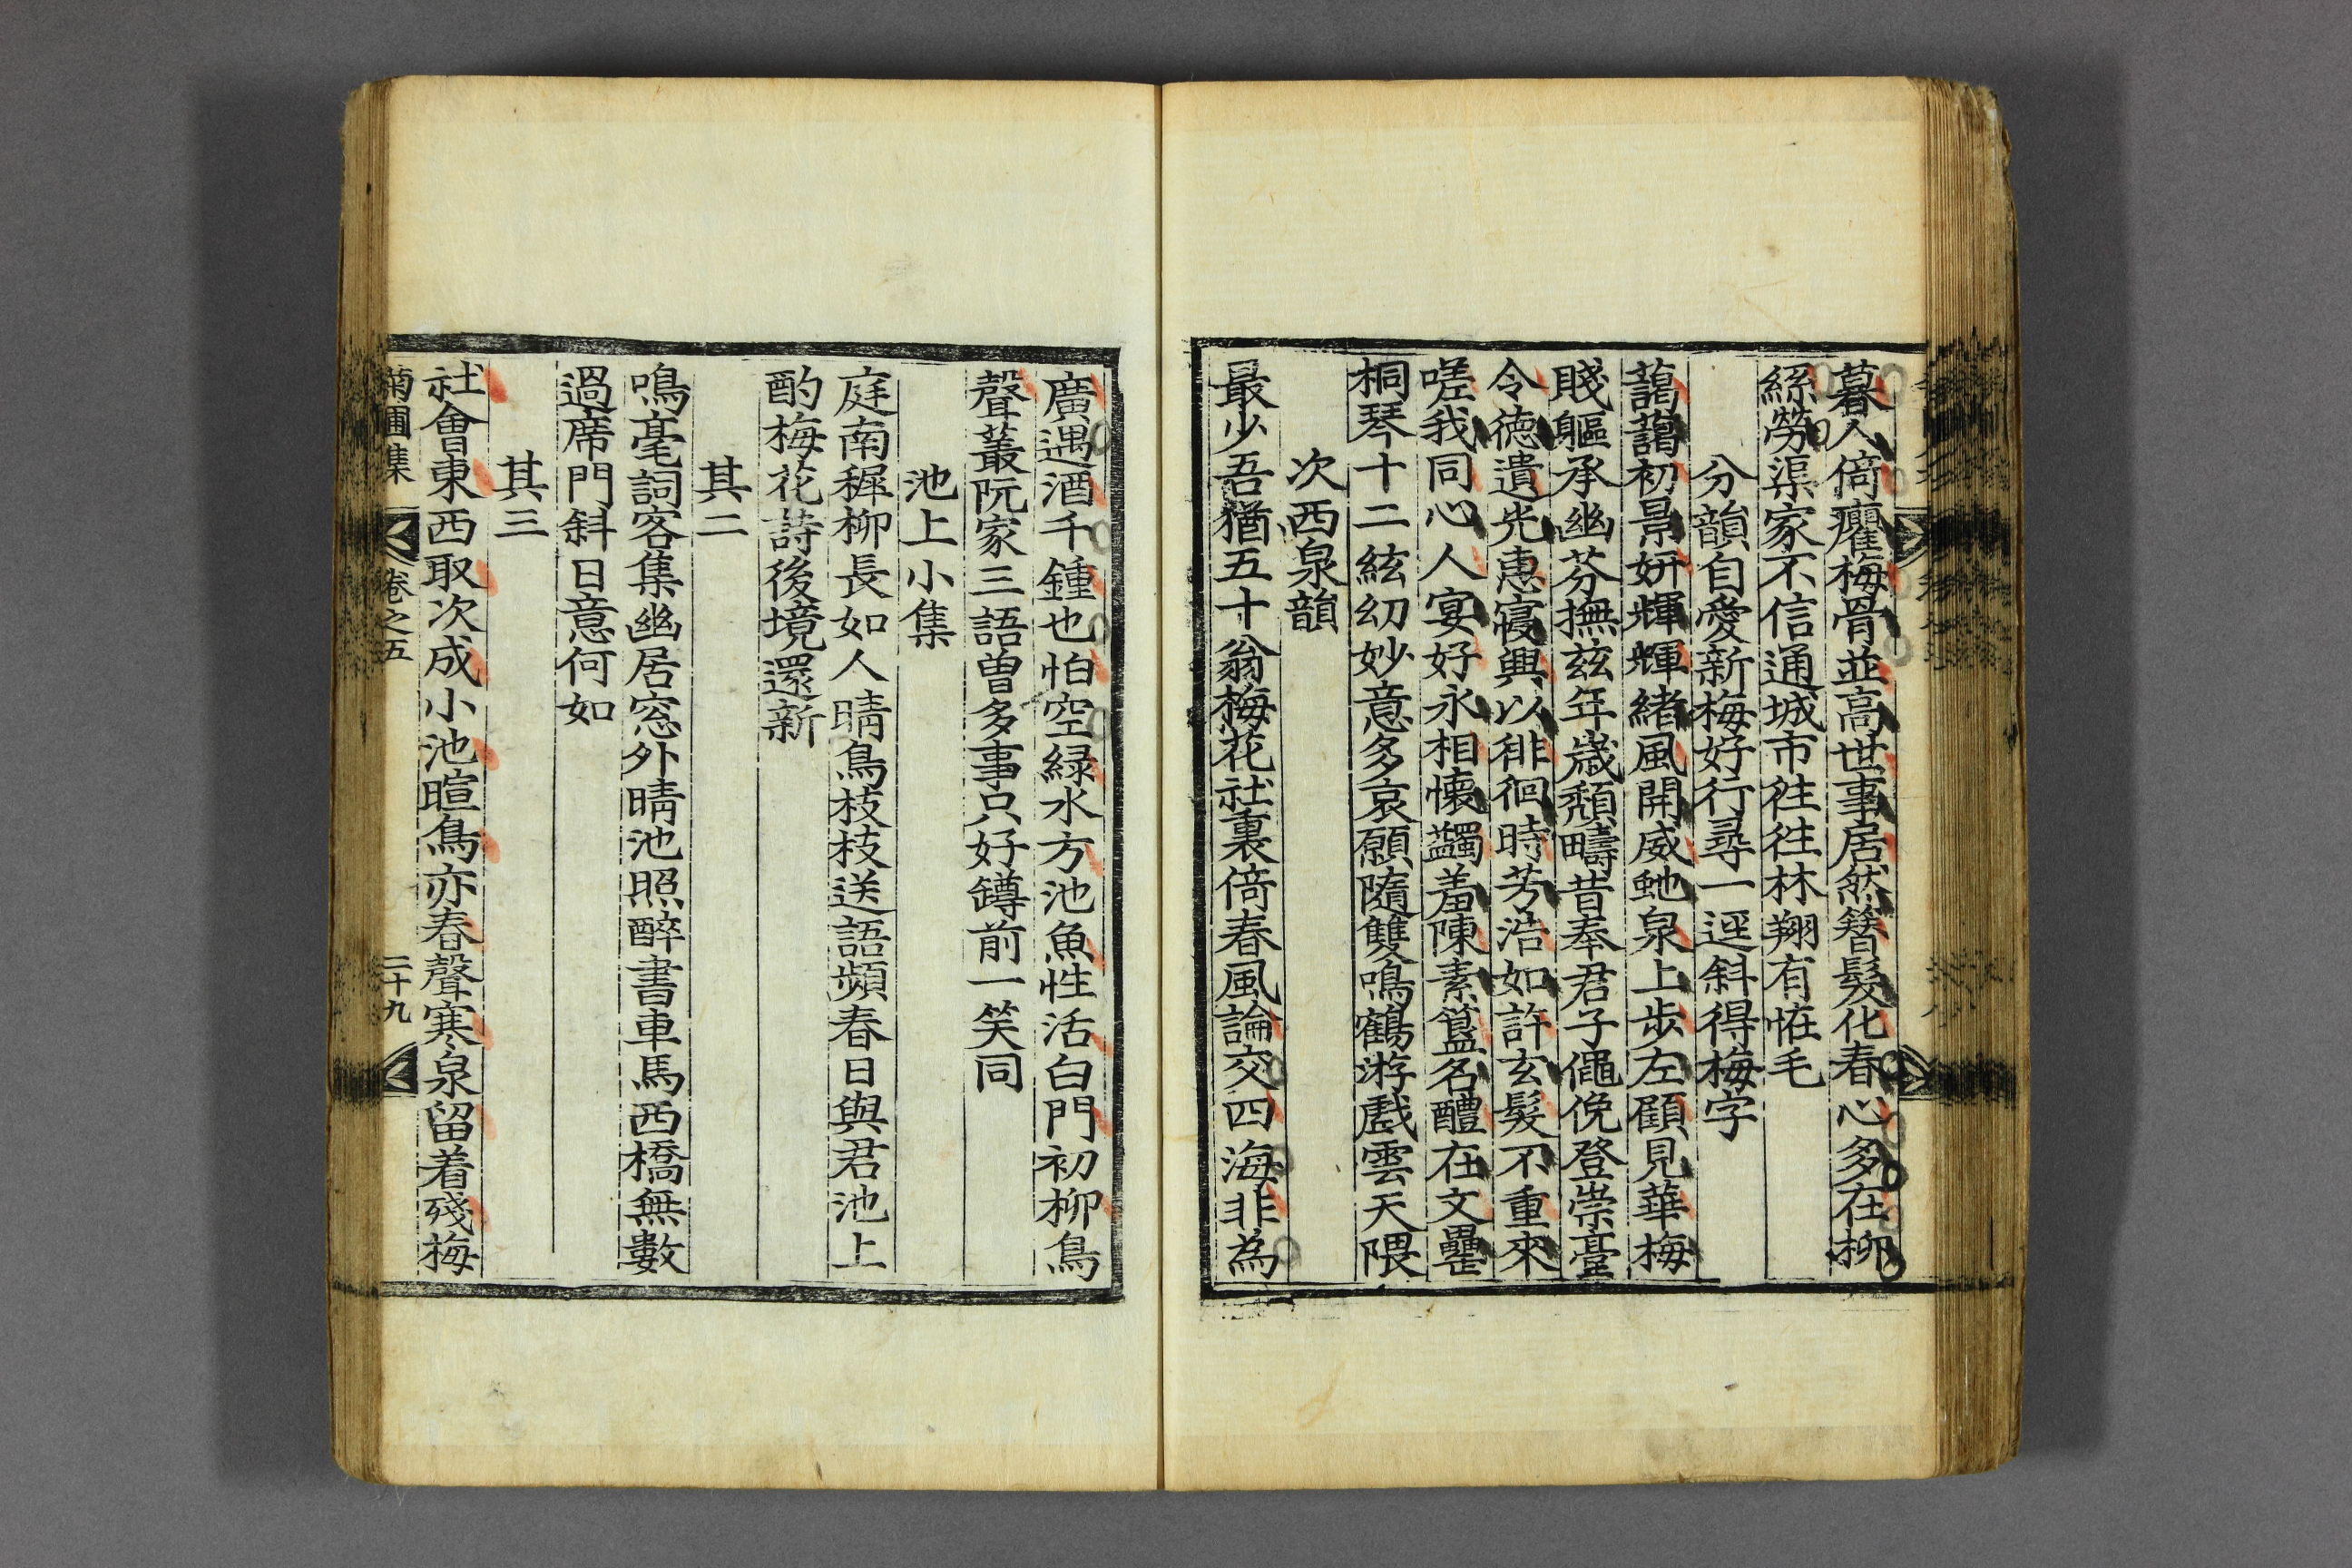 暮人倚癯梅骨並高世事居然簪髮化春心多在柳
絲勞渠家不信通城市徃徃林翔有恠毛
分韻自愛新梅好行尋一逕斜得梅字
藹藹初景妍輝輝緒風開威虵泉上步左顧見華梅
賤軀承幽芬撫玆年歲頹疇昔奉君子僶俛登崇臺
令德遺光惠寢興以徘徊時芳浩如許玄髮不重來
嗟我同心人宴好永相懷蠲羞陳素簋名醴在文罍
桐琴十二絃幻妙意多哀願隨雙鳴鶴游戲雲天隈
次西泉韻
最少吾猶五十翁梅花社裏倚春風論交四海非爲
廣遇酒千鍾也怕空綠水方池魚性活白門初柳鳥
聲叢阮家三語曾多事只好罇前一笑同
池上小集
庭南穉柳長如人晴鳥枝枝送語頻春日與君池上
酌梅花詩後境還新
其二
鳴毫詞客集幽居窓外晴池照醉書車馬西橋無數
過席門斜日意何如
其三
社會東西取次成小池暄鳥亦春聲寒泉留着殘梅
菊圃集 卷之五 二十九